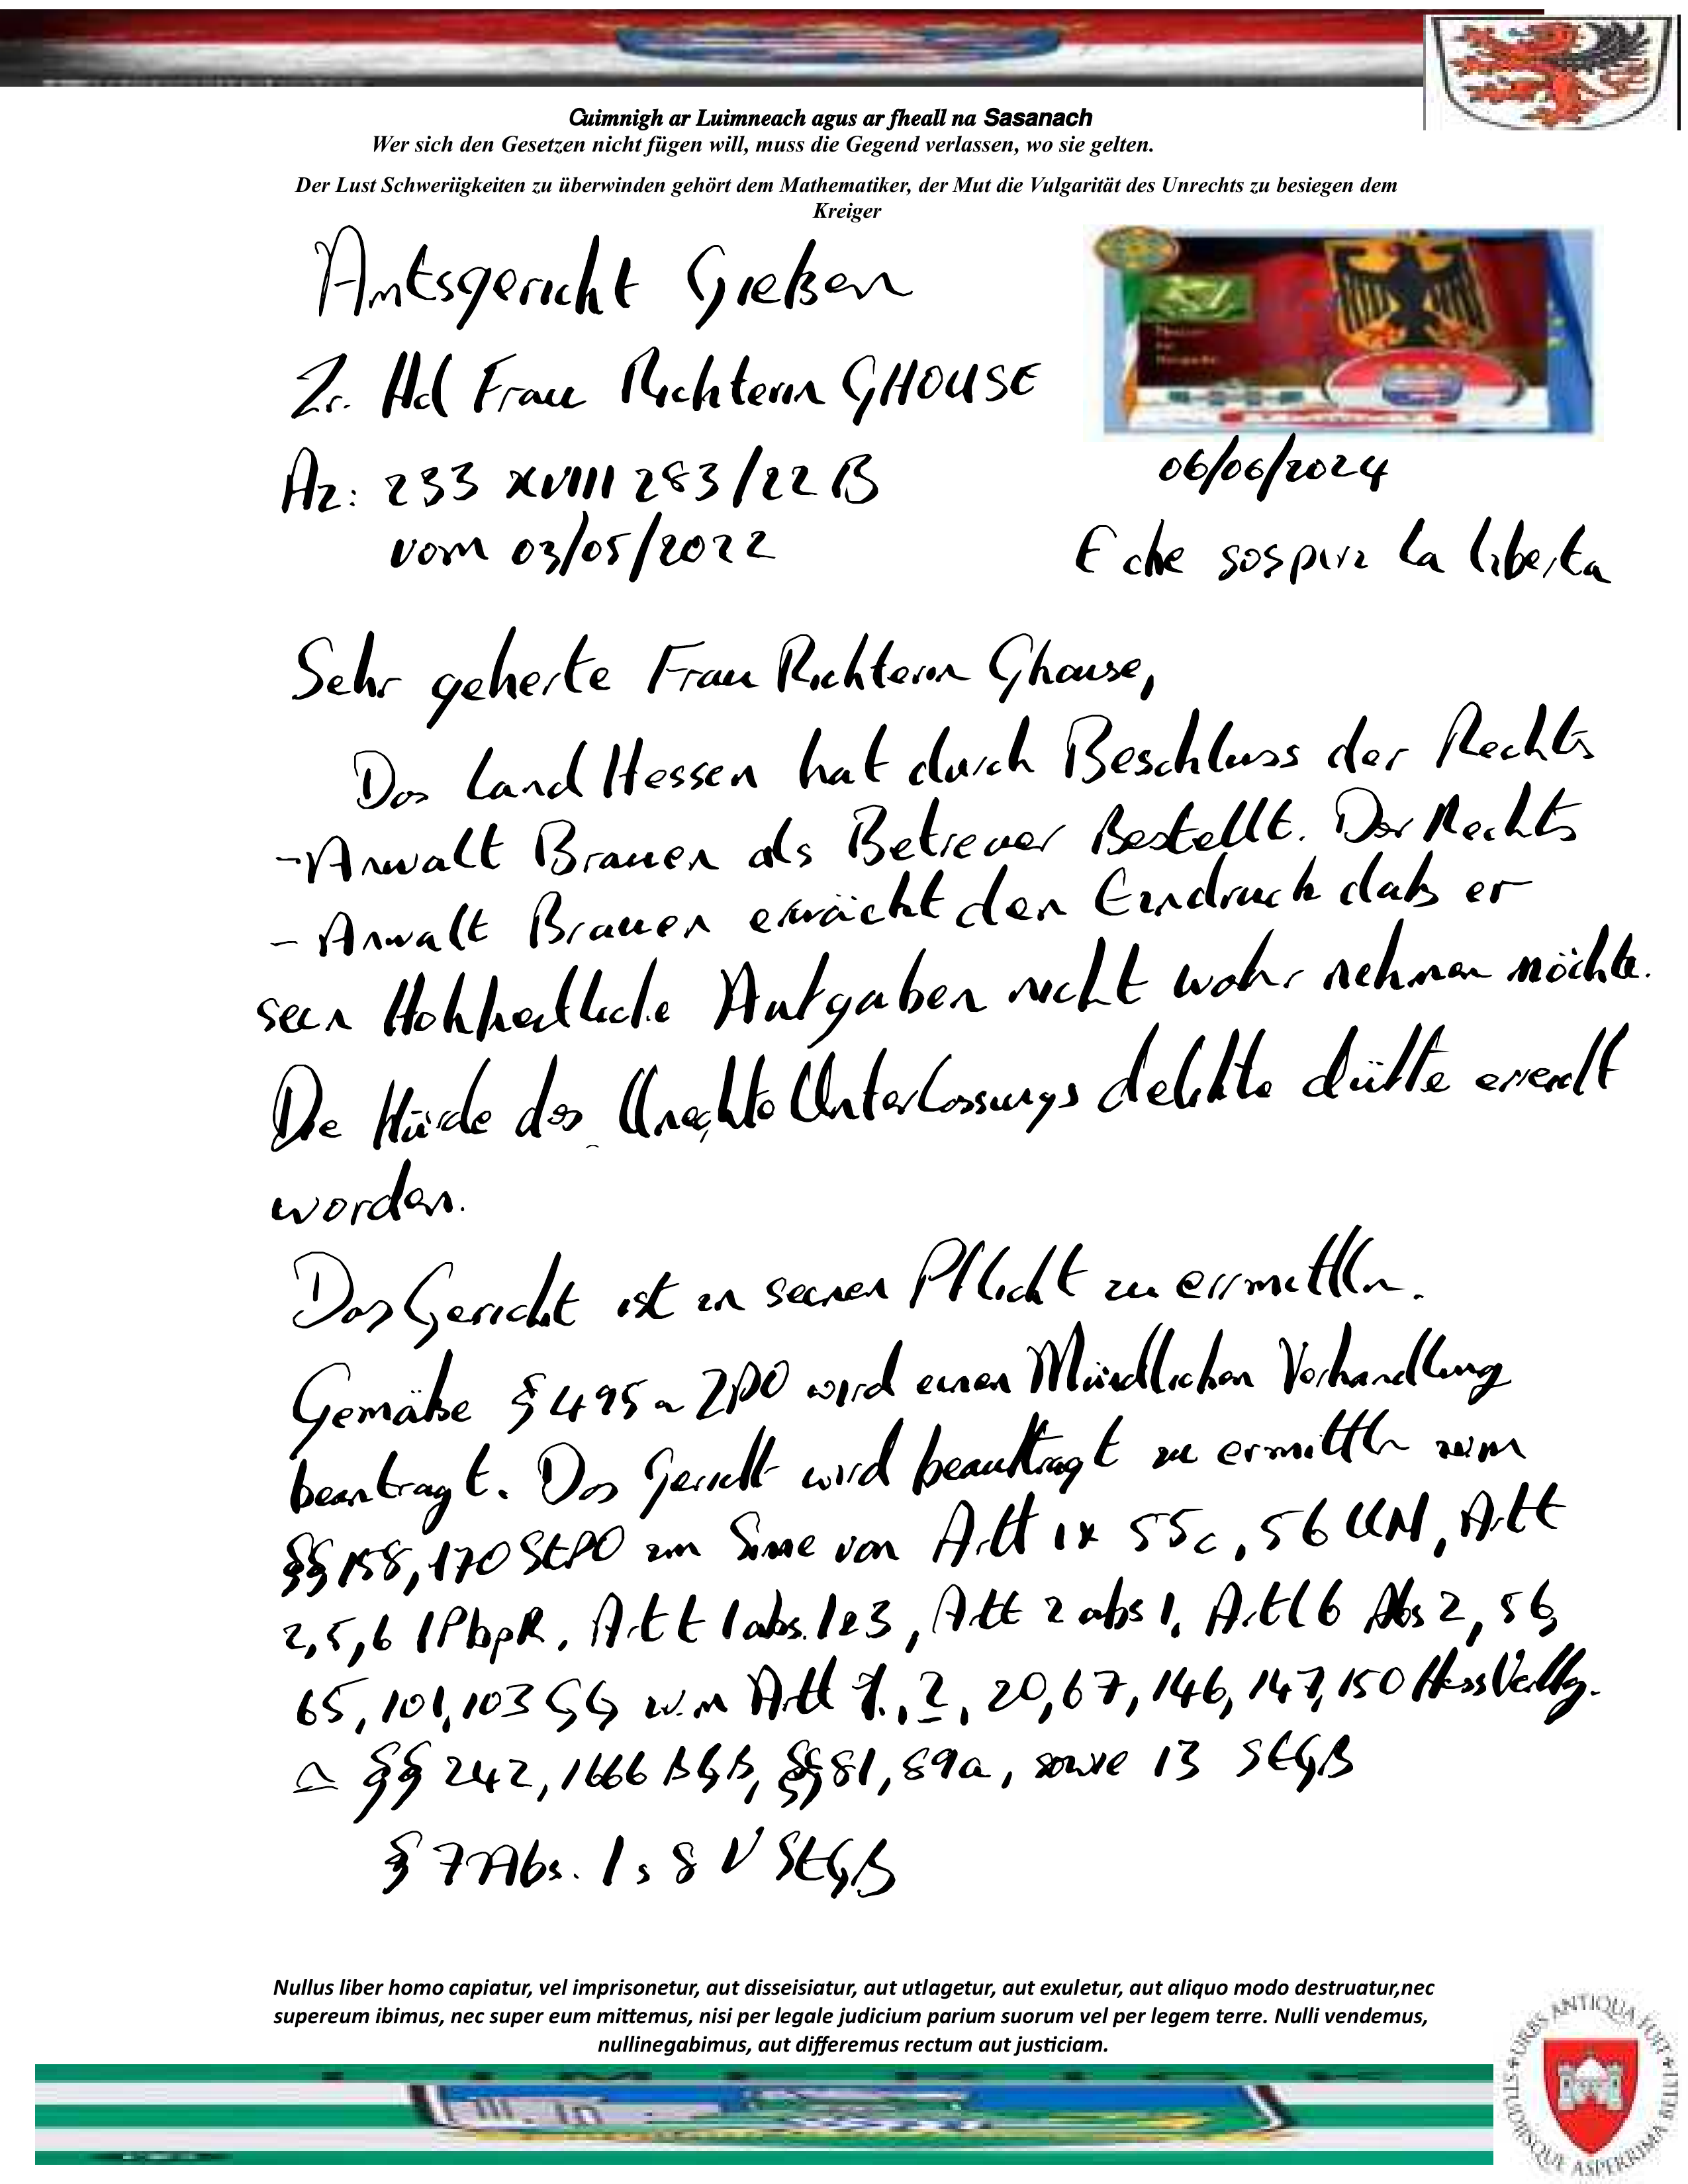 Cuimnigh ar Luimneach agus ar fheall na Sasanach
Wer sich den Gesetzen nicht fügen will, muss die Gegend verlassen, wo sie gelten.
Der Lust Schweriigkeiten zu überwinden gehört dem Mathematiker, der Mut die Vulgarität des Unrechts zu besiegen dem
Kreiger
Amtsgericht Gießen
Zr. Hd Frau Richterin GHOUSE
Az: 233 XVIII 283/22 B
06/06/2024
vom 03/05/2022
E che sospira la liberta
Sehr geherte Frau Richterin Ghouse,
Das Land Hessen hat durch Beschluss der Rechts
-Anwalt Brauer als Betreuer Bestellt. Der Rechts
- Anwalt Brauer erwächt den Eindruck daß er
sein Hohheitliche Aufgaben nicht wahr nehmen möchte.
Die Hürde des Unechte Unterlassungs delikte düfte ereilt
worden.
Das Gericht ist in seinen Pflicht zu ermittln.
Gemäße § 495a ZPO wird einen Mündlichen Verhandlung
beantragt. Das Gericht wird beauftragt zu ermittln zum
§§ 158, 170 StPO im Sinne von Artt 1x 55c, 56 UN, Artt
2, 5, 6 IPbpR, Artt 1 abs. 1&3, Artt 2 abs 1, Artt 6 Abs 2, 56,
65, 101, 103 GG w.m Artt 1, 2, 20, 67, 146, 147, 150 HessVerfg.
≙ §§ 242, 1666 BGB, §§ 81, 89a, sowie 13 StGB
§ 7 Abs. 1 s 8 VStGB
Nullus liber homo capiatur, vel imprisonetur, aut disseisiatur, aut utlagetur, aut exuletur, aut aliquo modo destruatur,nec
supereum ibimus, nec super eum mittemus, nisi per legale judicium parium suorum vel per legem terre. Nulli vendemus,
nullinegabimus, aut differemus rectum aut justiciam.
URBS ANTIQUA FUIT STUDIISQUE ASPERRIMA BELLI